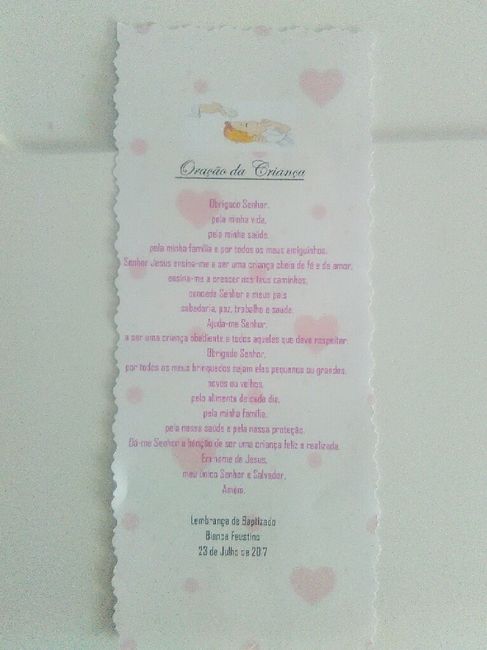 Oração da Criança
Obrigado Senhor,
pela minha vida,
pela minha saúde,
pela minha família e por todos os meus amiguinhos.
Senhor Jesus ensina-me a ser uma criança cheia de fé e de amor,
ensina-me a crescer nos teus caminhos,
conceda Senhor a meus pais
sabedoria, paz, trabalho e saúde.
Ajuda-me Senhor,
a ser uma criança obediente a todos aqueles que devo respeitar.
Obrigado Senhor,
por todos os meus brinquedos sejam eles pequenos ou grandes,
novos ou velhos,
pelo alimento de cada dia,
pela minha família,
pela nossa saúde e pela nossa proteção.
Dá-me Senhor a bênção de ser uma criança feliz e realizada.
Em nome de Jesus,
meu único Senhor e Salvador,
Amém.
Lembrança de Baptizado
Bianca Faustino
23 de Julho de 2017